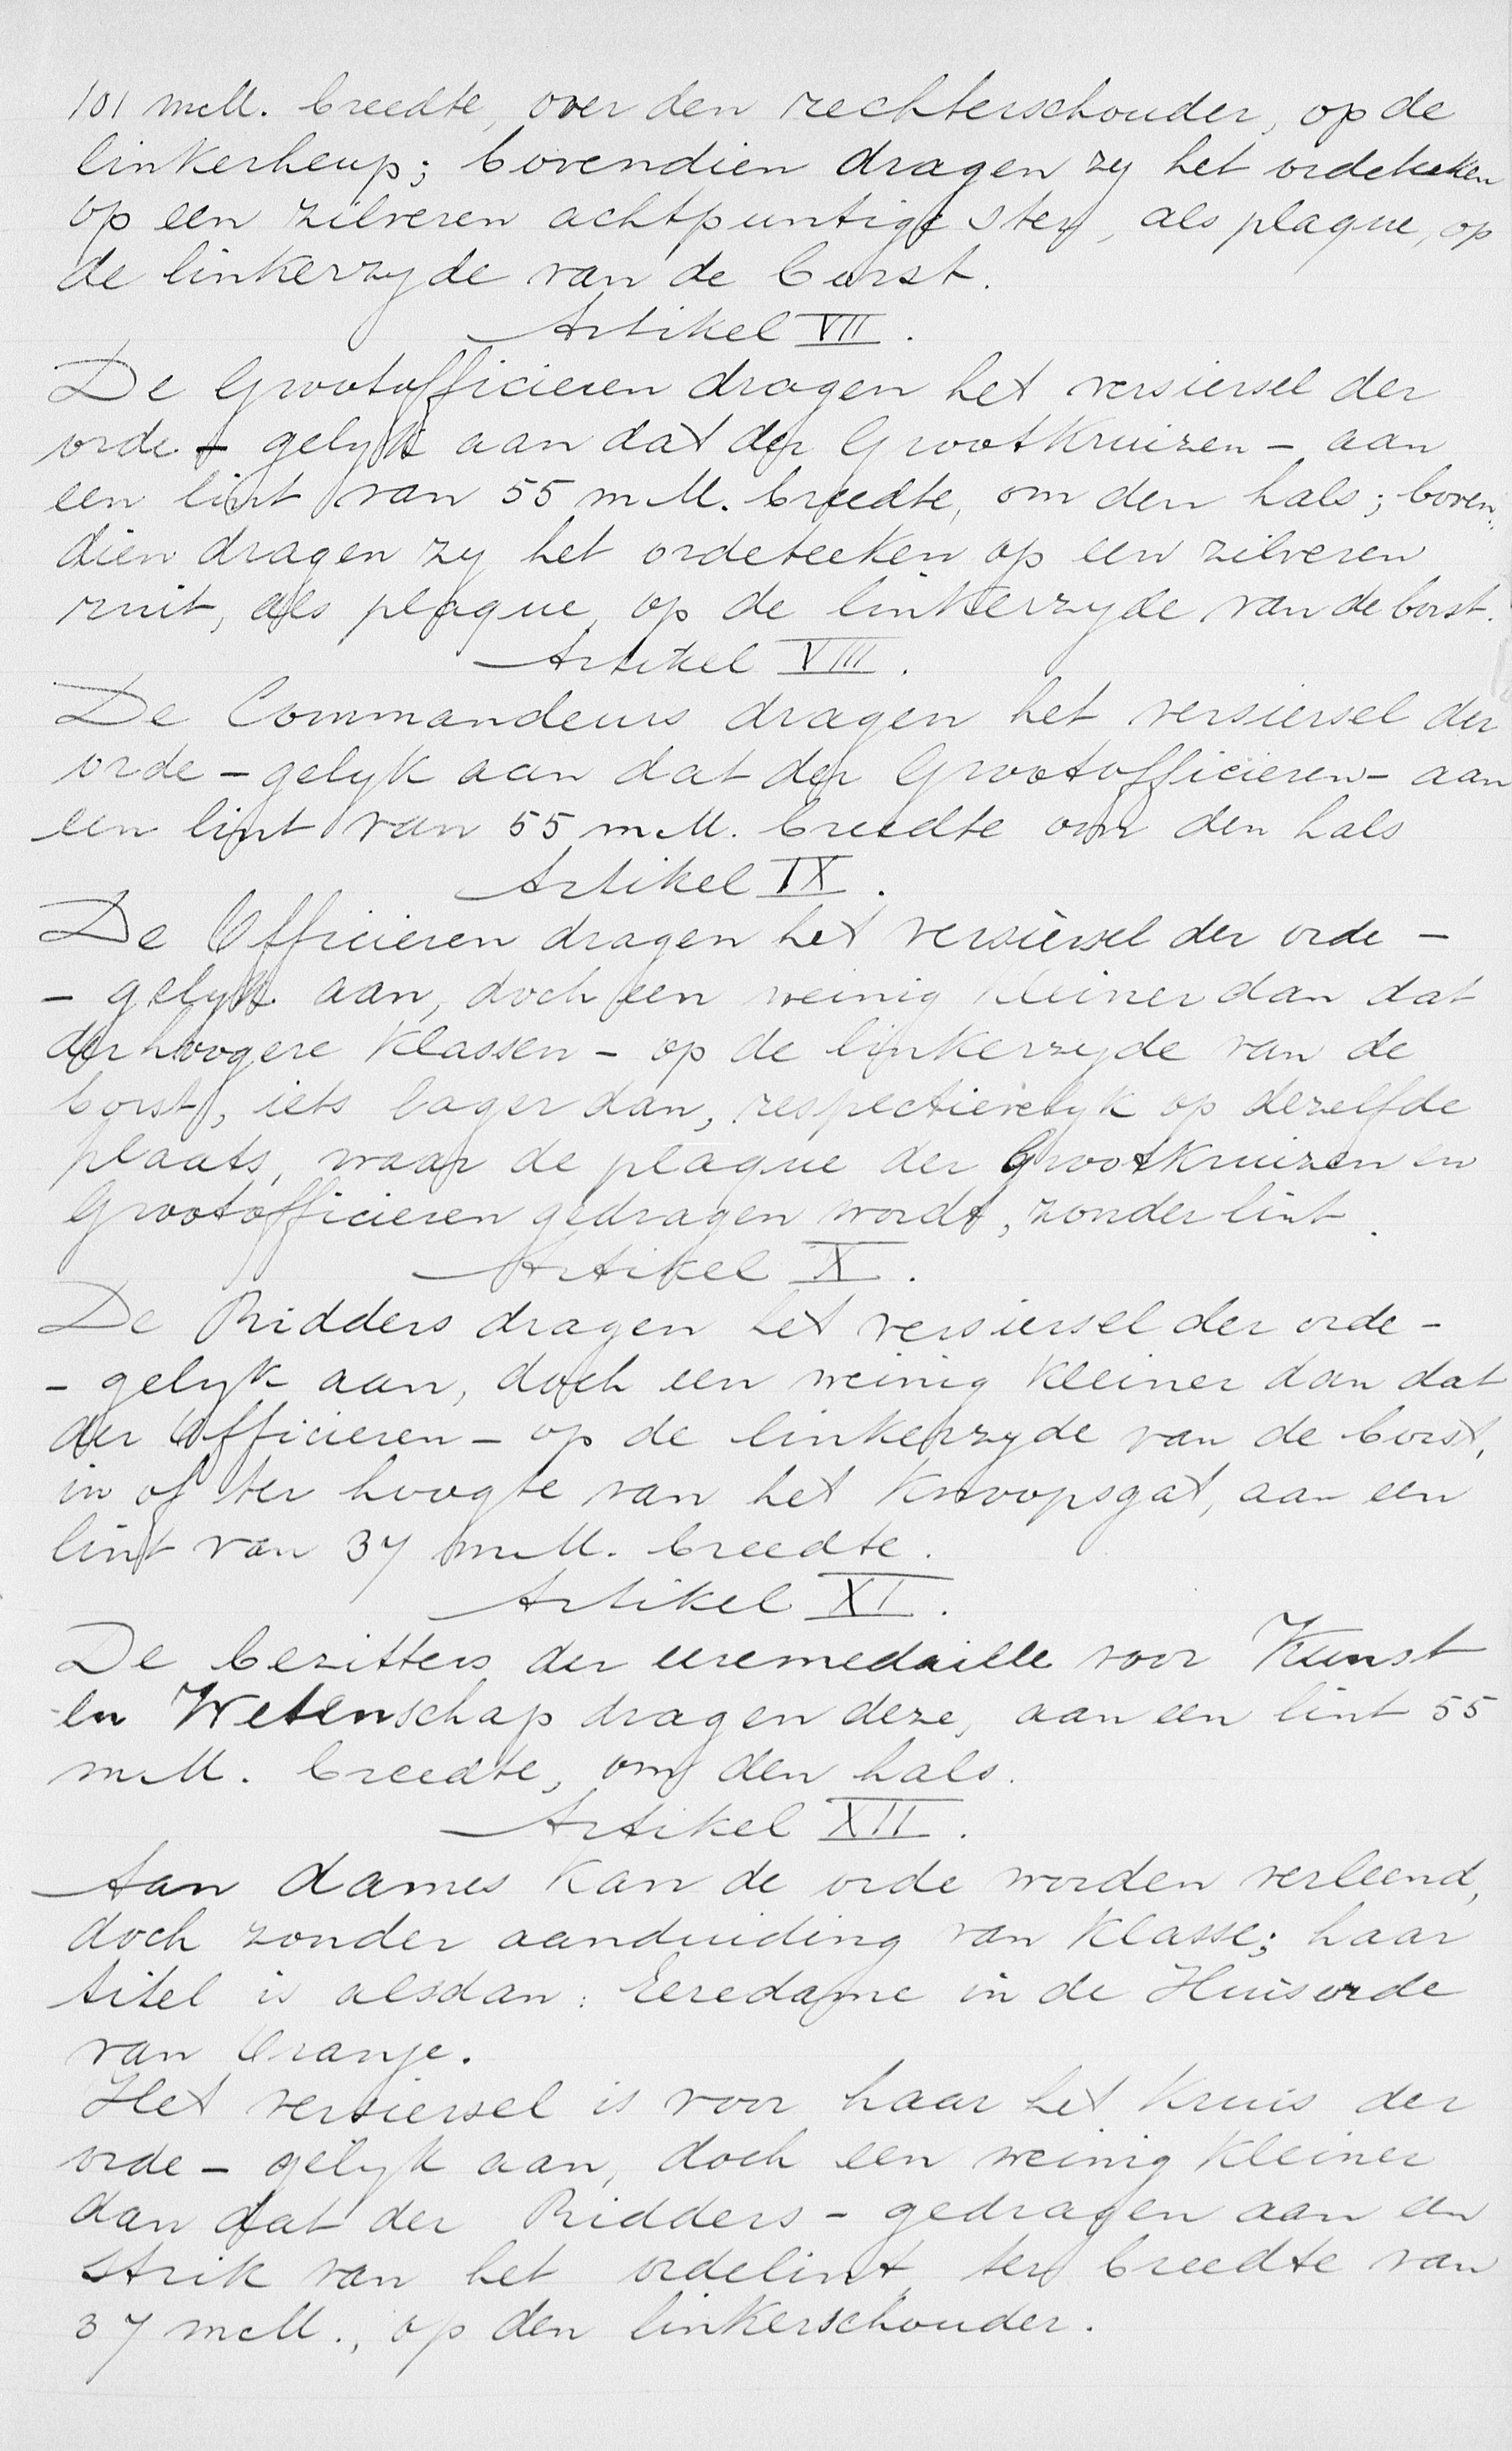 101 m.M. breedte, over den rechterschouder, op de
linkerheup; bovendien dragen zy het ordeteeken
op een zilveren achtpuntige ster, als plaque, op
de linkerzyde van de borst.
Artikel VII.
De Grootofficieren dragen het versiersel der
orde - gelyk aan dat der Grootkruizen - aan
een lint van 55 m.M. breedte, om den hals; boven-
dien dragen zy het ordeteeken op een zilveren
ruit, als plaque, op de linkerzyde van de borst.
Artikel VIII.
De Commandeurs dragen het versiersel der
orde - gelyk aan dat der Grootofficieren - aan
een lint van 55 m.M. breedte om den hals
Artikel IX.
De Officieren dragen het versiersel der orde -
- gelyk aan, doch een weinig kleiner dan dat
der hoogere klassen - op de linkerzyde van de
borst, iets lager dan, respectievelyk op dezelfde
plaats, waar de plaque der Grootkruizen en
Grootofficieren gedragen wordt, zonder lint.
Artikel X.
De Ridders dragen het versiersel der orde -
- gelyk aan, doch een weinig kleiner dan dat
der Officieren - op de linkerzyde van de borst,
in of ter hoogte van het knoopsgat, aan een
lint van 37 m.M. breedte.
Artikel XI.
De bezitters der eeremedaille voor Kunst
en Wetenschap dragen deze, aan een lint 55
m.M. breedte, om den hals.
Artikel XII.
Aan dames kan de orde worden verleend,
doch zonder aanduiding van klasse; haar
titel is alsdan: Eeredame in de Huisorde
van Oranje.
Het versiersel is voor haar het kruis der
orde - gelyk aan, doch een weinig kleiner
dan dat der Ridders - gedragen aan een
strik van het ordelint, ter breedte van
37 m.M., op den linkerschouder.